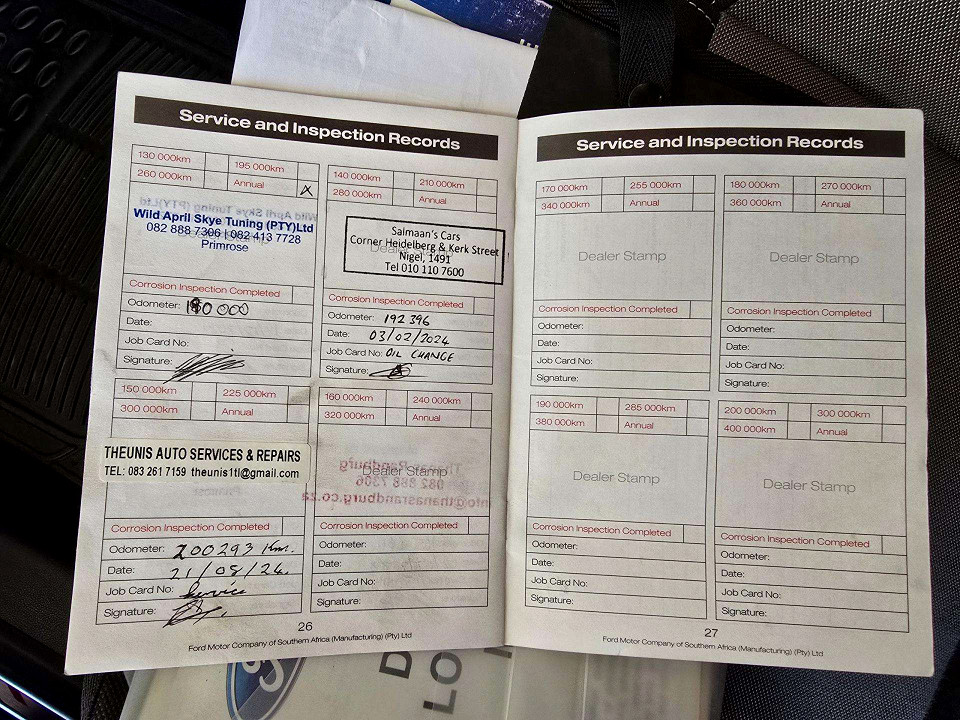 Service and Inspection Records
130 000km 195 000km
260 000km Annual X
Wild April Skye Tuning (PTY)Ltd
082 888 7306 | 082 413 7728
Primrose
Corrosion Inspection Completed
Odometer: 180 000
Date:
Job Card No:
Signature:
140 000km 210 000km
280 000km Annual
Salmaan's Cars
Corner Heidelberg & Kerk Street
Nigel, 1491
Tel 010 110 7600
Corrosion Inspection Completed
Odometer: 192 396
Date: 03/02/2024
Job Card No: OIL CHANGE
Signature:
150 000km 225 000km
300 000km Annual
THEUNIS AUTO SERVICES & REPAIRS
TEL: 083 261 7159 theunis1tl@gmail.com
Corrosion Inspection Completed
Odometer: 200293 Km.
Date: 21/08/24.
Job Card No: Service
Signature:
160 000km 240 000km
320 000km Annual
Dealer Stamp
082 888 7306
info@thanasrandburg.co.za
Corrosion Inspection Completed
Odometer:
Date:
Job Card No:
Signature:
26
Ford Motor Company of Southern Africa (Manufacturing) (Pty) Ltd
Service and Inspection Records
170 000km 255 000km
340 000km Annual
Dealer Stamp
Corrosion Inspection Completed
Odometer:
Date:
Job Card No:
Signature:
180 000km 270 000km
360 000km Annual
Dealer Stamp
Corrosion Inspection Completed
Odometer:
Date:
Job Card No:
Signature:
190 000km 285 000km
380 000km Annual
Dealer Stamp
Corrosion Inspection Completed
Odometer:
Date:
Job Card No:
Signature:
200 000km 300 000km
400 000km Annual
Dealer Stamp
Corrosion Inspection Completed
Odometer:
Date:
Job Card No:
Signature:
27
Ford Motor Company of Southern Africa (Manufacturing) (Pty) Ltd